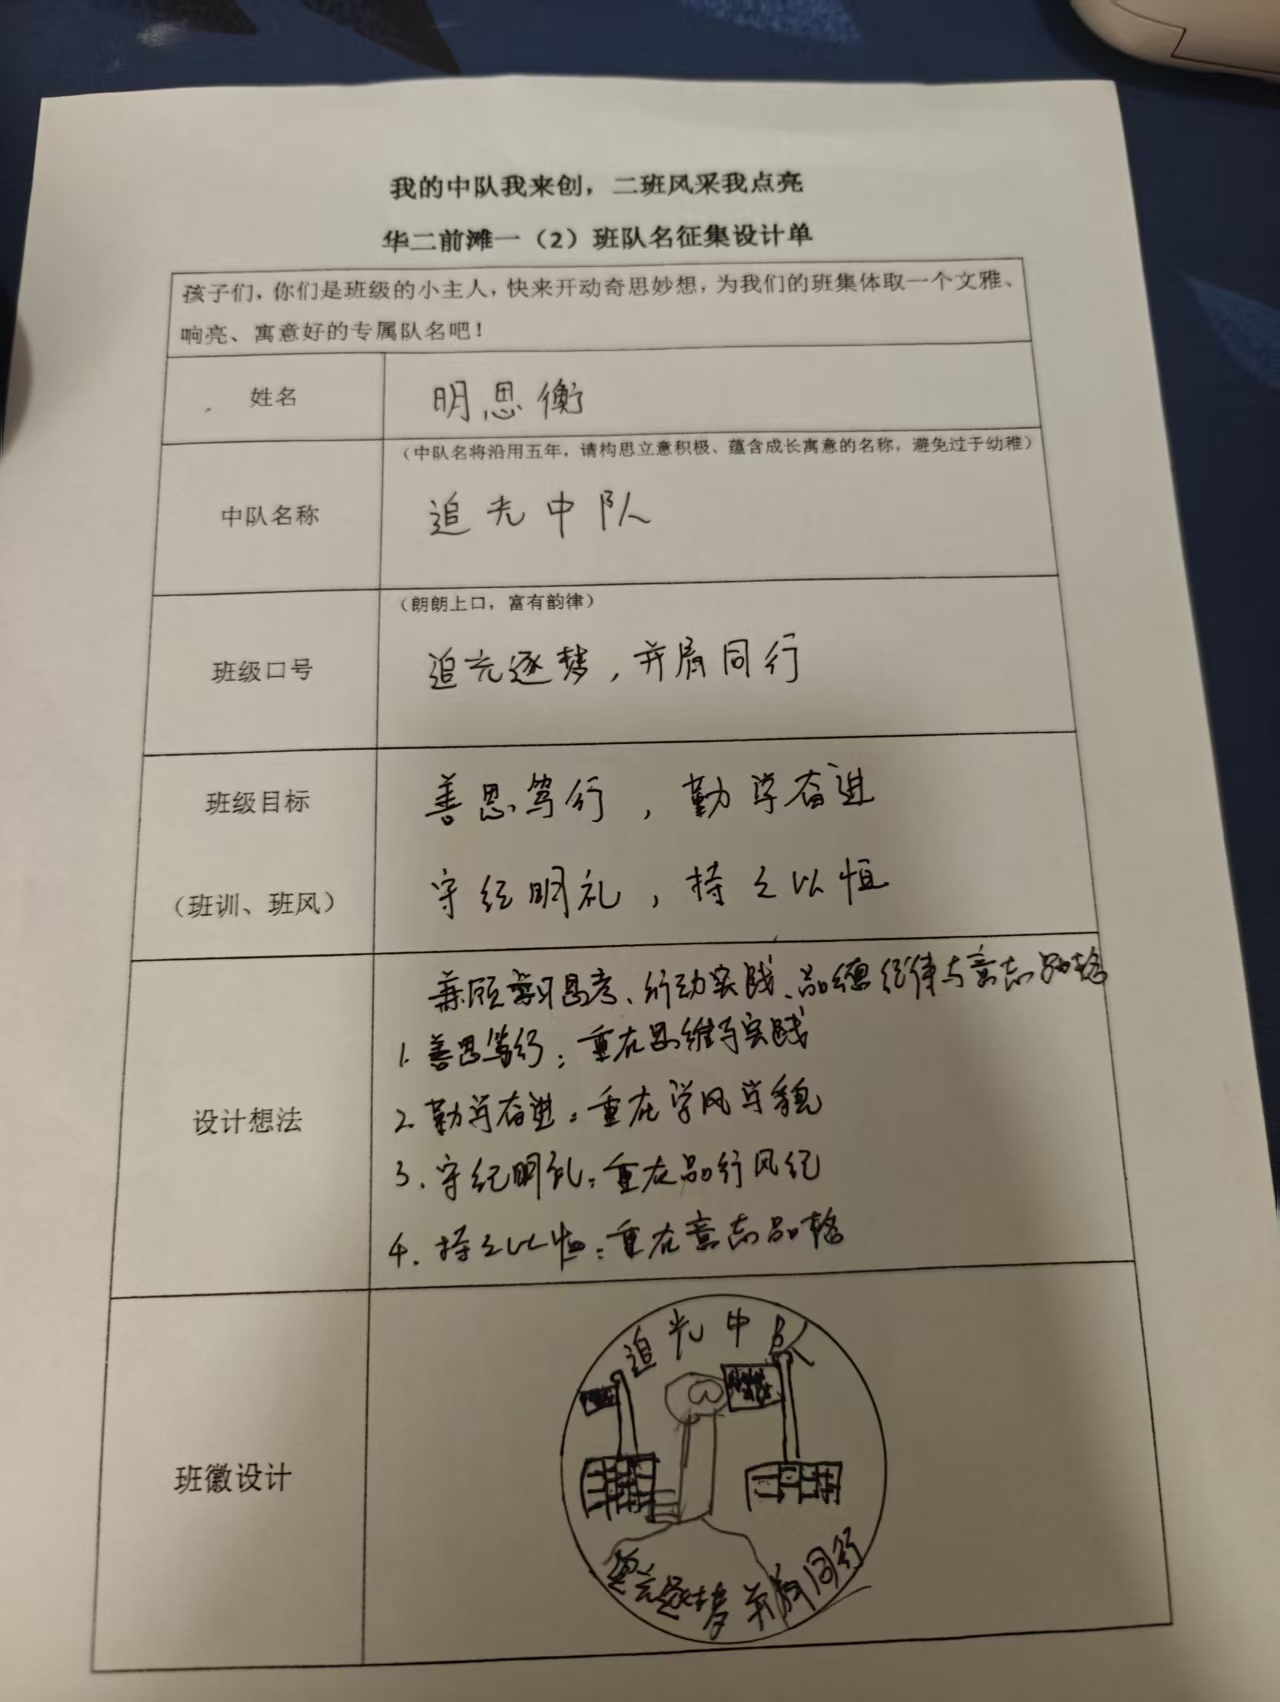 我的中队我来创，二班风采我点亮
华二前滩一（2）班队名征集设计单
孩子们，你们是班级的小主人，快来开动奇思妙想，为我们的班集体取一个文雅、
响亮、寓意好的专属队名吧！
姓名
明思衡
中队名称
（中队名将沿用五年，请构思立意积极、蕴含成长寓意的名称，避免过于幼稚）
追光中队
班级口号
（朗朗上口，富有韵律）
追光逐梦，并肩同行
班级目标
（班训、班风）
善思笃行，勤学奋进
守纪明礼，持之以恒
设计想法
兼顾学习思考、行动实践、品德纪律与意志品格
1. 善思笃行：重在思维与实践
2. 勤学奋进：重在学风学貌
3. 守纪明礼：重在品行风纪
4. 持之以恒：重在意志品格
班徽设计
追光中队
追光逐梦 并肩同行